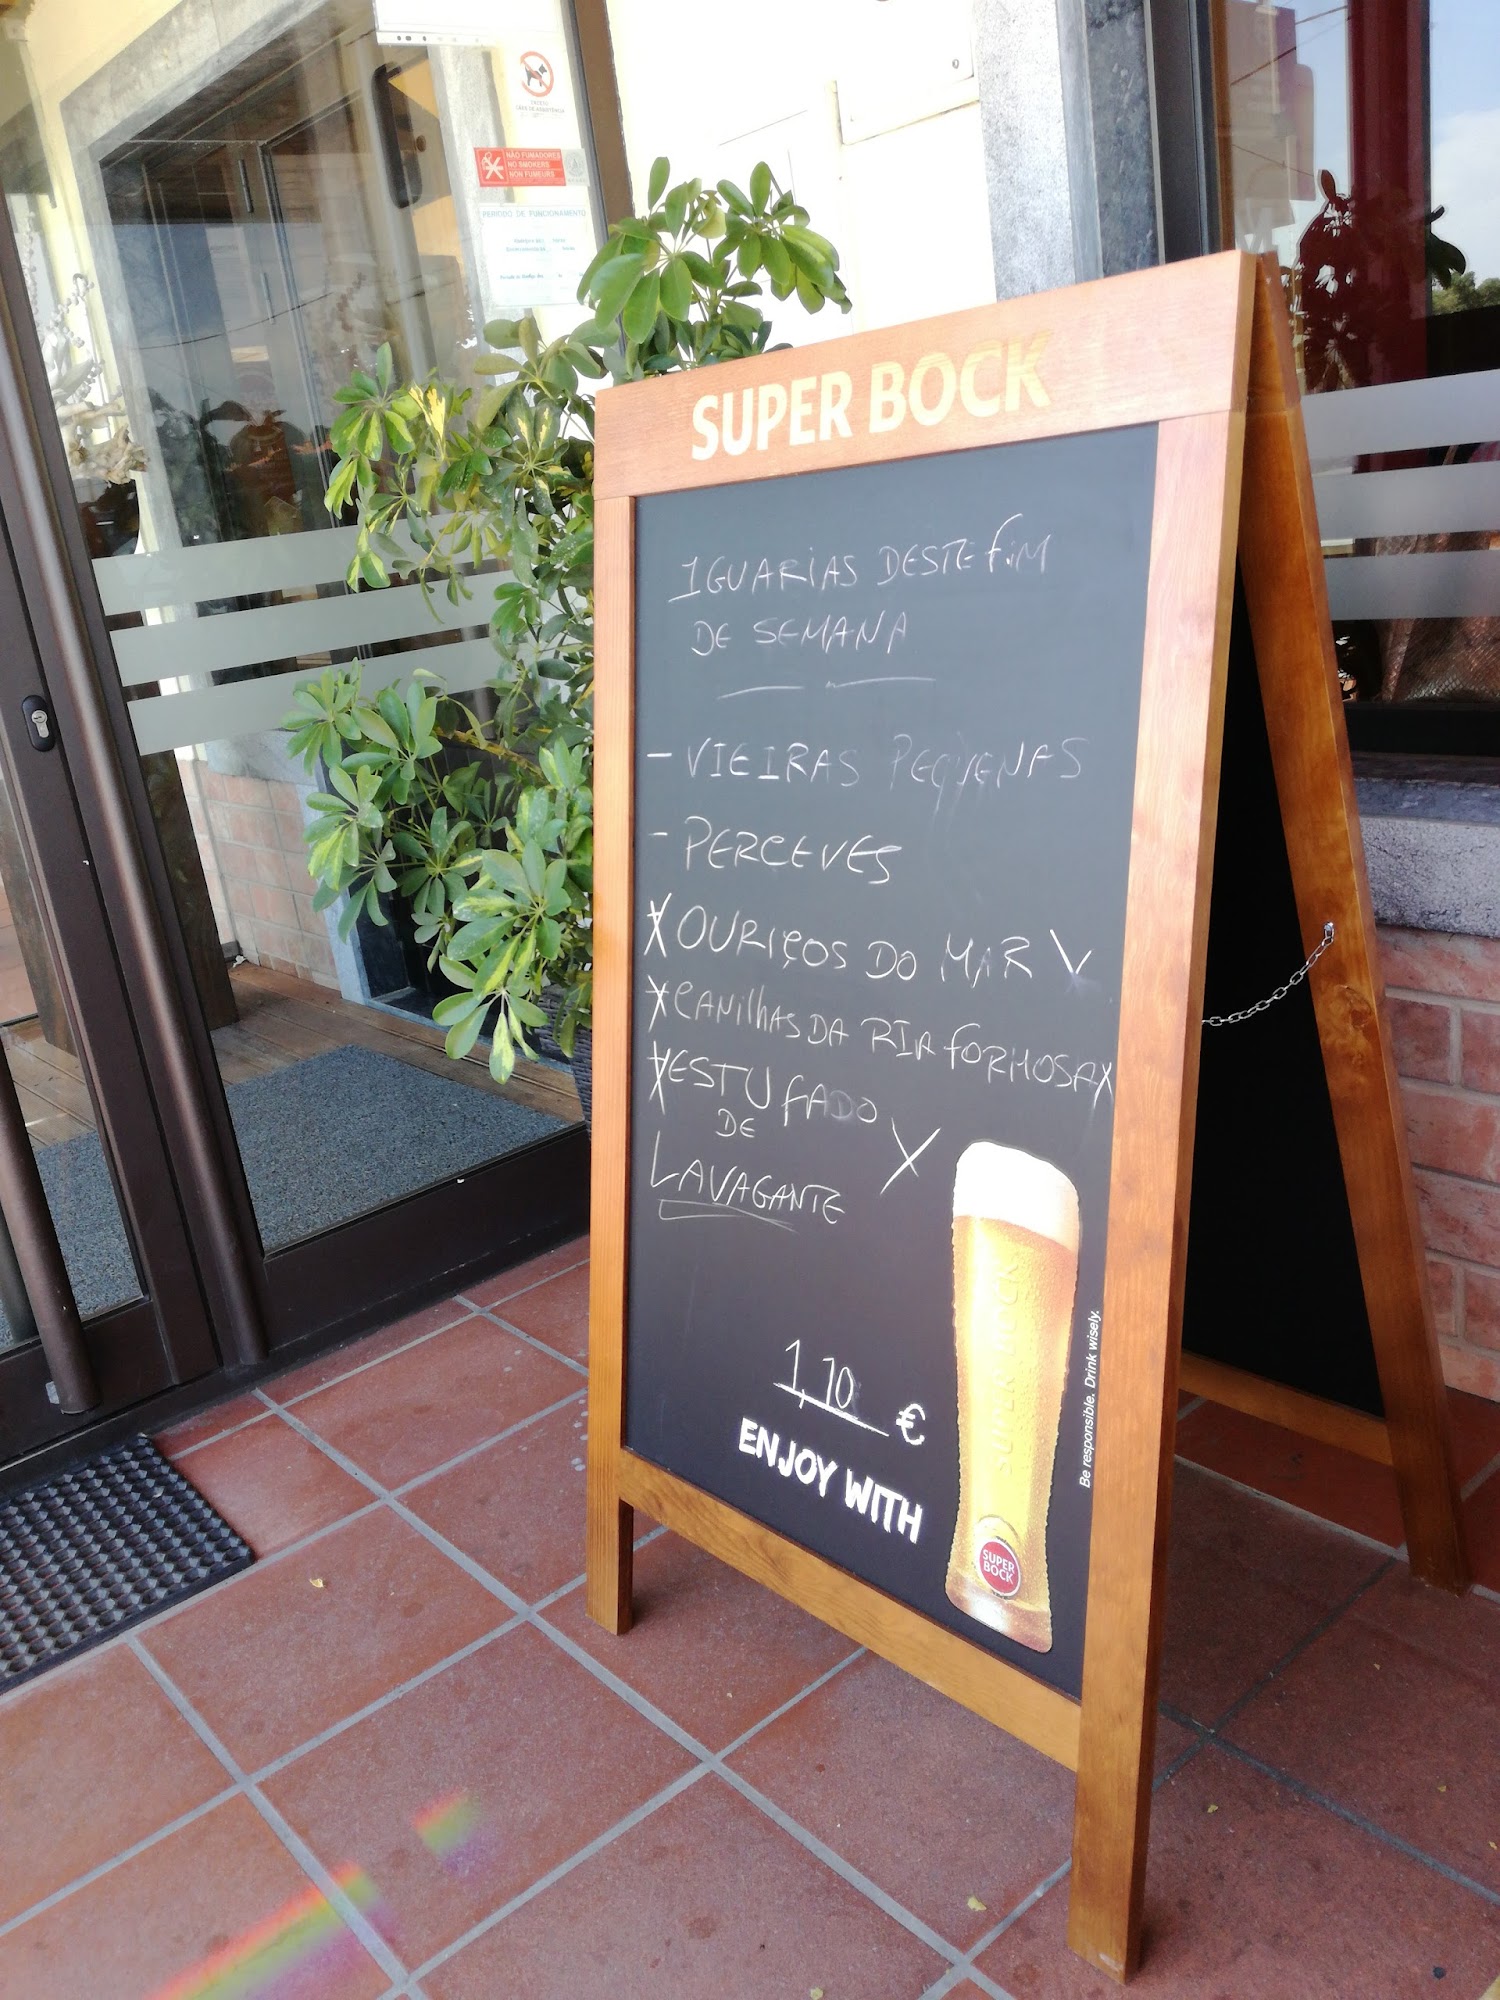 EXCETO
CÃES DE ASSISTÊNCIA
NÃO FUMADORES
NO SMOKERS
NON FUMEURS
PERÍODO DE FUNCIONAMENTO
SUPER BOCK
IGUARIAS DESTE FIM
DE SEMANA
- VIEIRAS PEQUENAS
- PERCEVES
X OURIÇOS DO MAR X
X CANILHAS DA RIA FORMOSA X
X ESTUFADO
DE X
LAVAGANTE
1,10 €
ENJOY WITH
SUPER BOCK
SUPER
BOCK
Be responsible. Drink wisely.